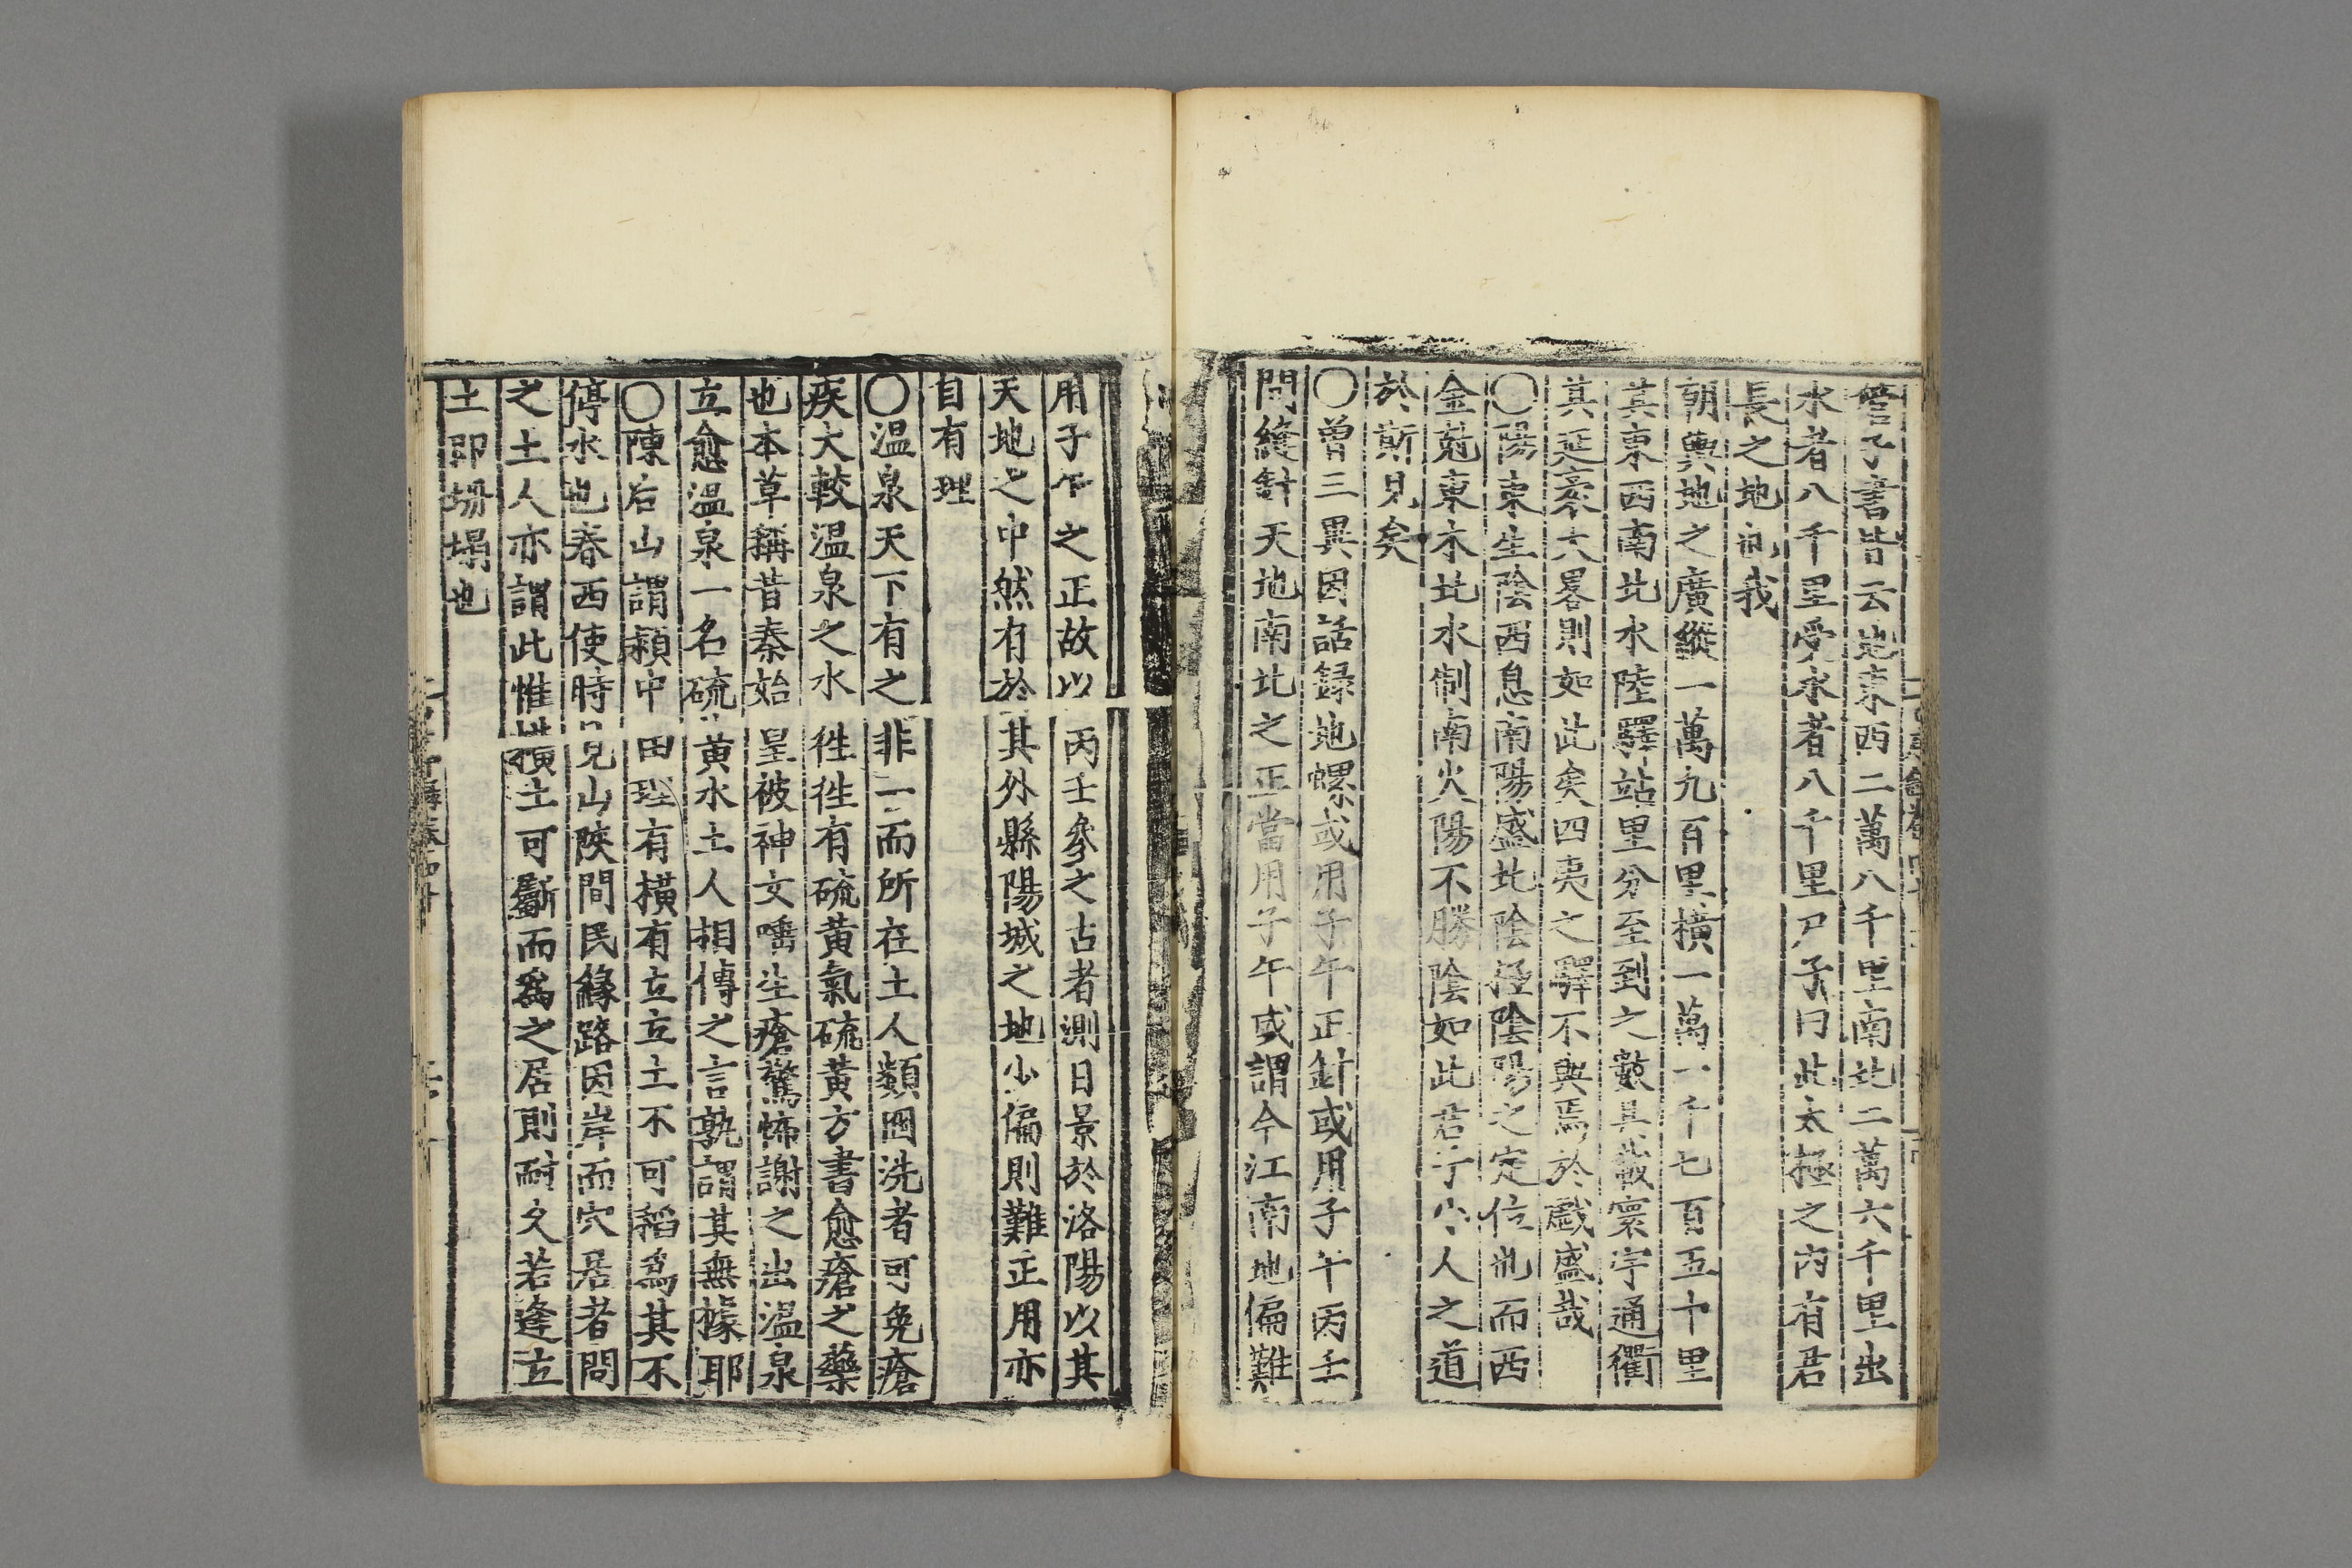 管子書皆云地東西二萬八千里南北二萬六千里出
水者八千里受水者八千里尸子曰此太極之內有君
長之地也我
朝輿地之廣縱一萬九百里橫一萬一千七百五十里
其東西南北水陸驛站里分至到之數具載寰宇通衢
其延袤大畧則如此矣四夷之驛不與焉於戲盛哉
○陽東生陰西息南陽盛北陰極陰陽之定位也而西
金尅東木北水制南火陽不勝陰如此君子小人之道
於斯見矣
○曾三異因話録地螺或用子午正針或用子午丙壬
問縫針天地南北之正當用子午或謂今江南地偏難
用子午之正故以丙壬叅之古者測日景於洛陽以其
天地之中然有於其外縣陽城之地少偏則難正用亦
自有理
○温泉天下有之非一而所在土人類圂洗者可免瘡
疾大較温泉之水徃徃有硫黄氣硫黄方書愈瘡之藥
也本草稱昔秦始皇被神女唾生瘡驚怖謝之出温泉
立愈温泉一名硫黄水土人相傳之言孰謂其無據耶
○陳后山謂潁中田理有橫有立立土不可稻爲其不
停水也春西使時見山陝間民緣路因岸而穴居者問
之土人亦謂此惟橫土可斸而爲之居則耐久若逢立
土即坍塌也